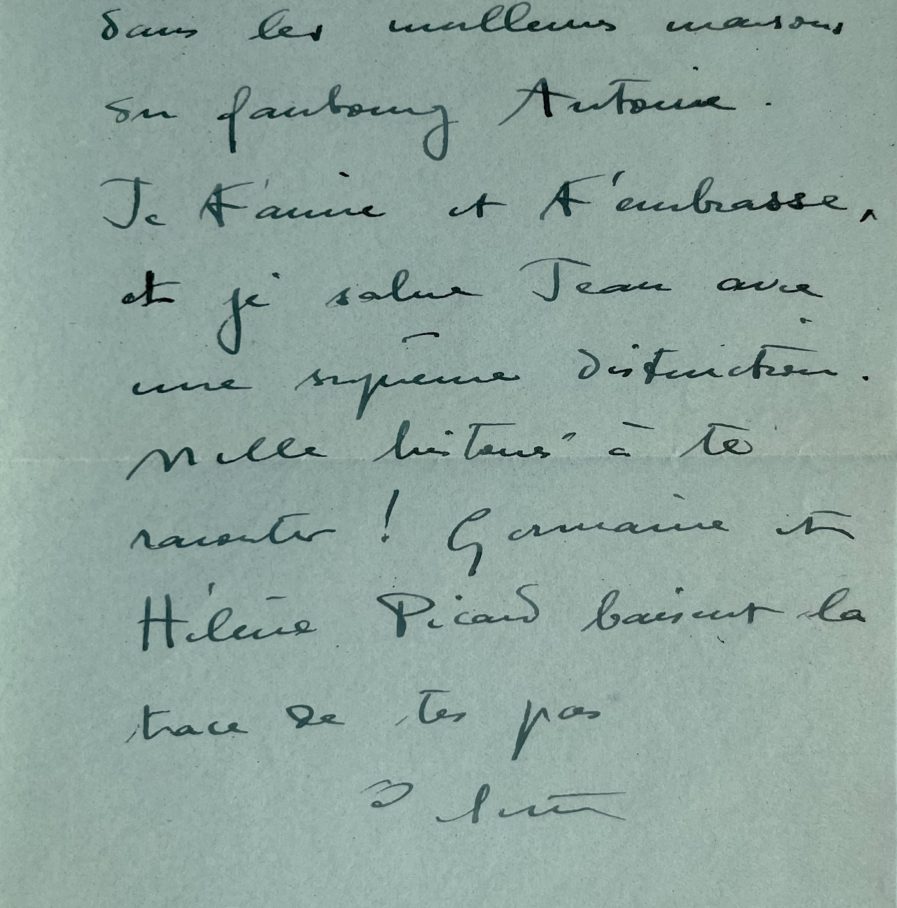 dans les meilleures maisons
du faubourg Antoine.
Je t'aime et t'embrasse,
et je salue Jean avec
une suprême distinction.
Mille histoires à te
raconter ! Germaine et
Hélène Picard baisent la
trace de tes pas